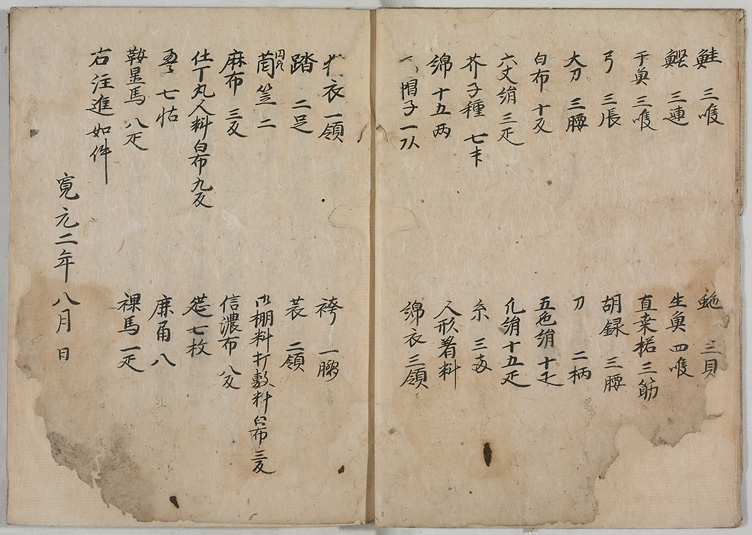 鮭 三隻
鮑 三貝
鰹 三連
生魚 四隻
干魚 三隻
直桒楉 三筋
弓 三張
胡録 三腰
大刀 三腰
刀 二柄
白布 十反
五色絹 十疋
六丈絹 三疋
凡絹 十五疋
芥子種 七
糸 三
綿 十五両
人形着料
帽子 一
綿衣 三領
衣 一領
袴 一腰
踏 二足
蓑 二領
笠 二
棚料打敷料白布 三反
麻布 三反
信濃布 八反
仕丁丸人料白布 九反
七枚
七
八
鞍置馬 八疋
裸馬 一疋
右注進如件
寛元二年八月 日